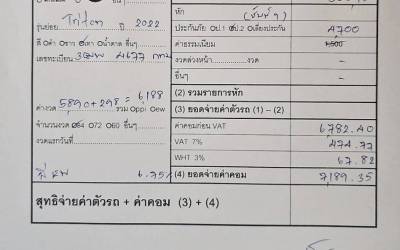 หัก (ชับป์ ๆ)
รุ่นย่อย Triton ปี 2022
ประกันภัย ป.1 ป.2 เลี่ยงประกัน 4,700
ค่าธรรมเนียม 1,500
งวดล่วงหน้า งวด -
อื่นๆ -
สี ดำ ขาว เทา น้ำตาล อื่นๆ
เลขทะเบียน 4677 กทม
(2) รวมรายการหัก
(3) ยอดจ่ายค่าตัวรถ (1) – (2)
ค่างวด 5,890 + 298 = 6,188 รวม ppi ew
จำนวนงวด 54 72 60 อื่นๆ
งวดแรกวันที่
ค่าคอมก่อน VAT 6,782.40
VAT 7% 474.77
WHT 3% 67.82
6.75%
(4) ยอดจ่ายค่าคอม 7,189.35
สุทธิจ่ายค่าตัวรถ + ค่าคอม (3) + (4)